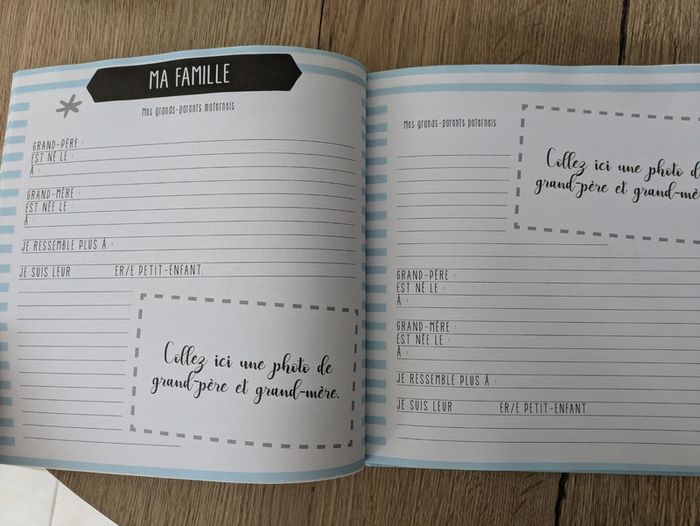 MA FAMILLE
Mes grands-parents maternels
GRAND-PÈRE :
EST NÉ LE :
À :
GRAND-MÈRE :
EST NÉE LE :
À :
JE RESSEMBLE PLUS À :
JE SUIS LEUR ER/E PETIT-ENFANT.
Collez ici une photo de
grand-père et grand-mère.
Mes grands-parents paternels
Collez ici une photo d
grand-père et grand-mè
GRAND-PÈRE :
EST NÉ LE :
À :
GRAND-MÈRE :
EST NÉE LE :
À :
JE RESSEMBLE PLUS À :
JE SUIS LEUR ER/E PETIT-ENFANT.